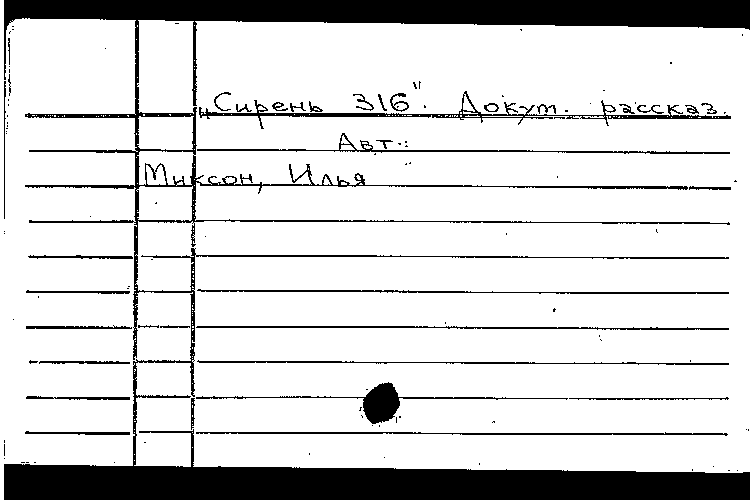 „Сирень 316". Докум. рассказ.
Авт.:
Миксон, Илья